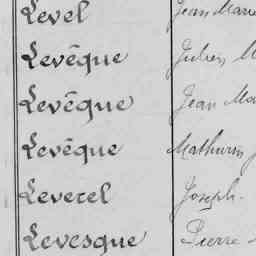 Level Jean Marie
Levêque Julien M
Levêque Jean Ma
Levêque Mathurin
Leverel Joseph.
Levesque Pierre